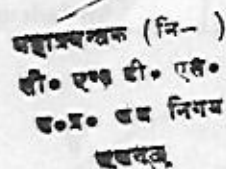 महाप्रबन्धक (नि- )
सी० एण्ड डी० एस०
उ०प्र० जल निगम
लखनऊ